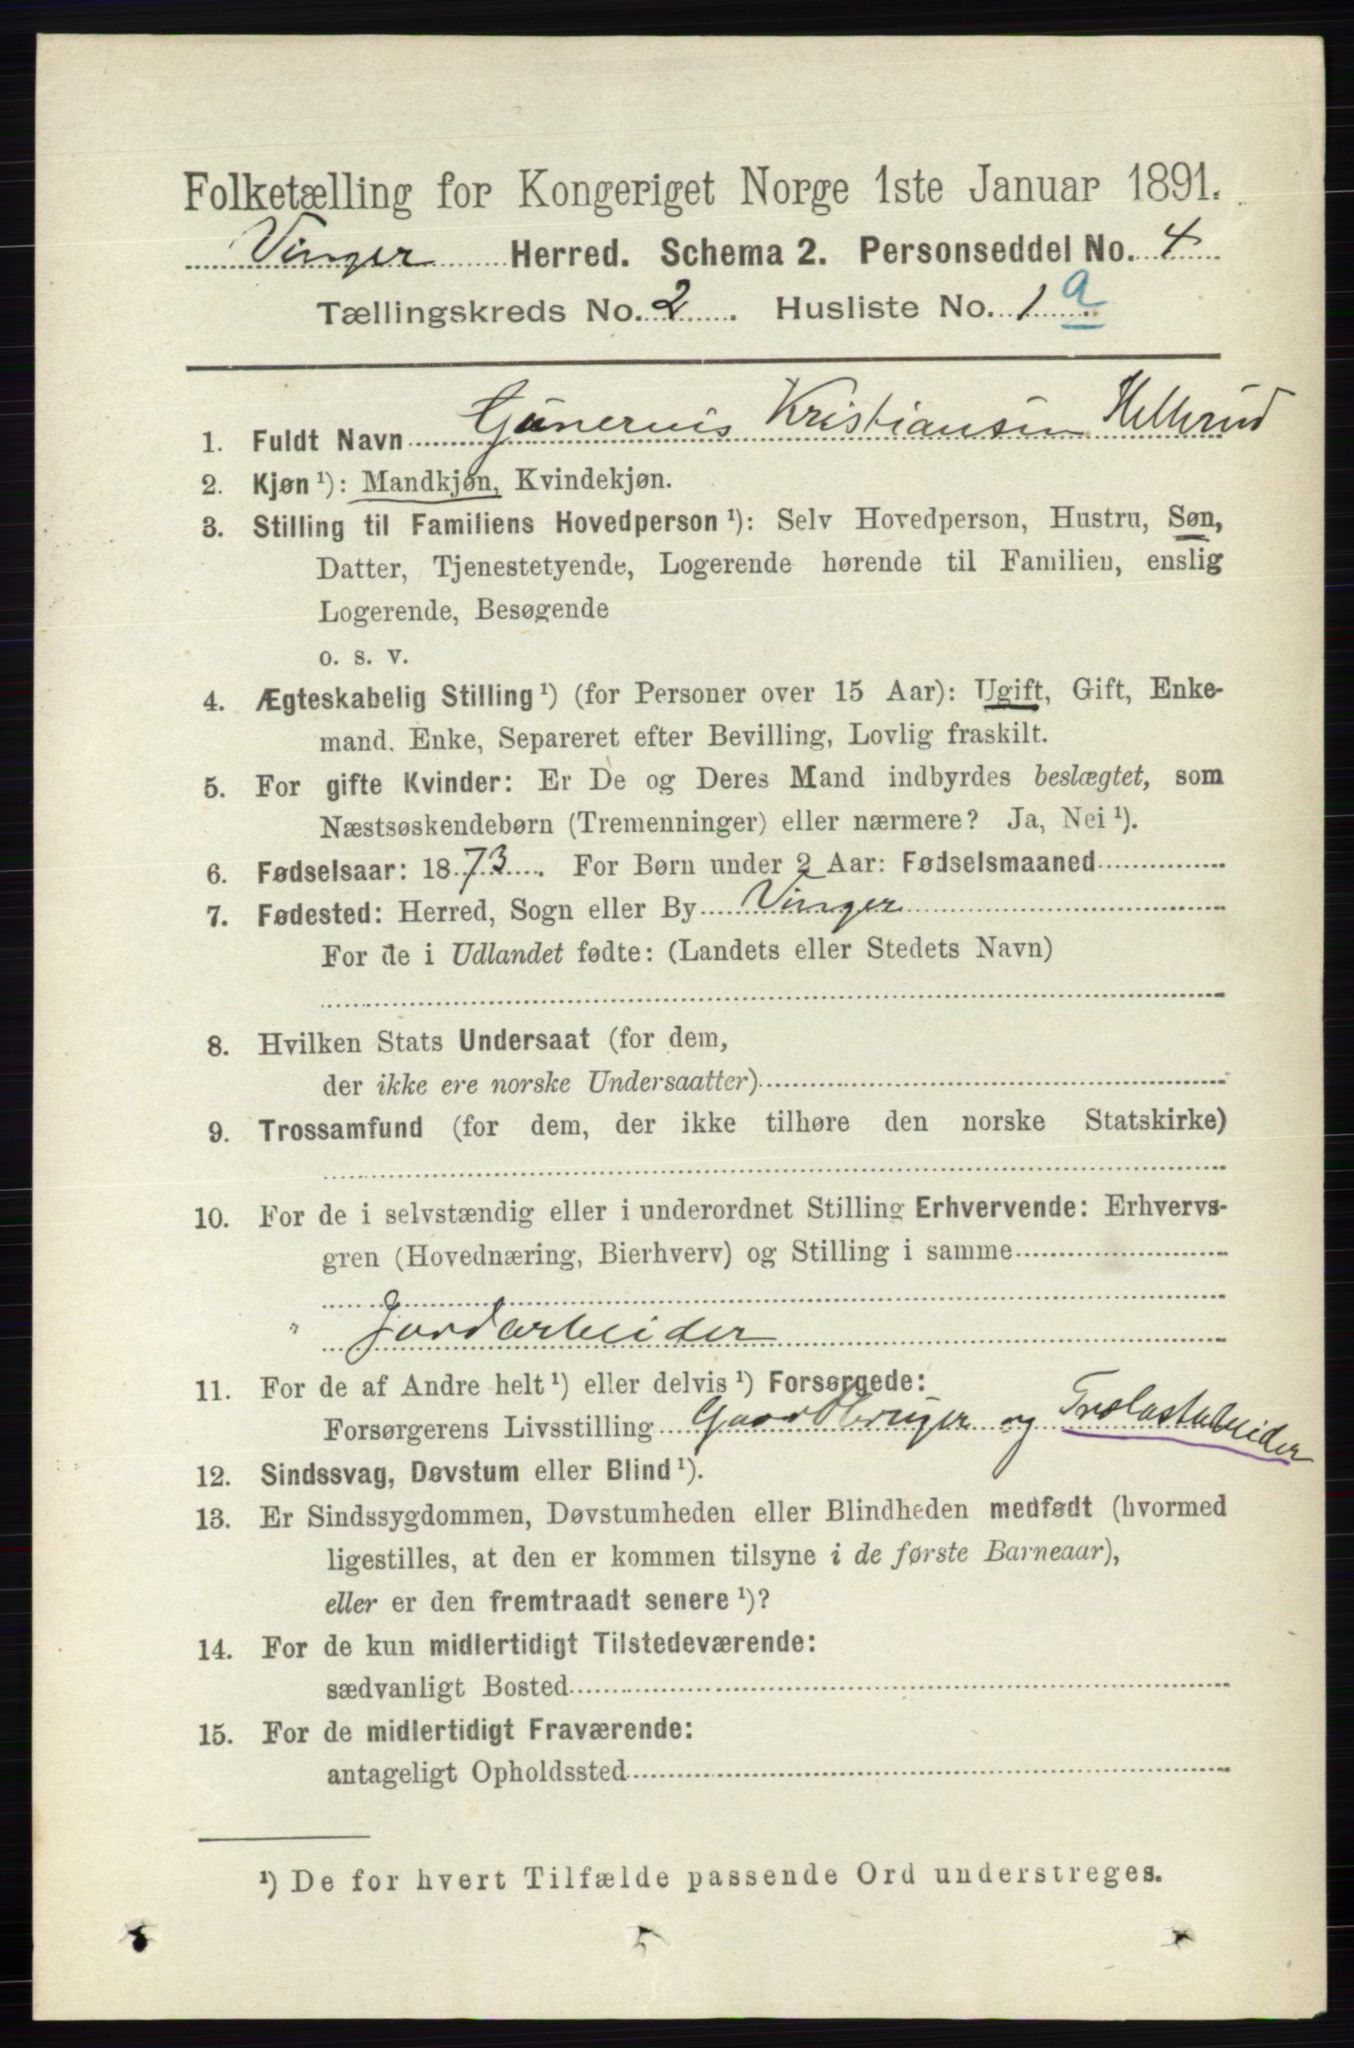 Folketælling for Kongeriget Norge 1ste Januar 1891.
Vinger Herred. Schema 2. Personseddel No. 4
Tællingskreds No. 2. Husliste No. 1 a
1. Fuldt Navn Kristiansen Hellerud
2. Kjøn ¹): Mandkjøn, Kvindekjøn.
3. Stilling til Familiens Hovedperson ¹): Selv Hovedperson, Hustru, Søn,
Datter, Tjenestetyende, Logerende hørende til Familien, enslig
Logerende, Besøgende
o. s. v.
4. Ægteskabelig Stilling ¹) (for Personer over 15 Aar): Ugift, Gift, Enke-
mand, Enke, Separeret efter Bevilling, Lovlig fraskilt.
5. For gifte Kvinder: Er De og Deres Mand indbyrdes beslægtet, som
Næstsøskendebørn (Tremenninger) eller nærmere? Ja, Nei ¹).
6. Fødselsaar: 1873. For Børn under 2 Aar: Fødselsmaaned
7. Fødested: Herred, Sogn eller By Vinger
For de i Udlandet fødte: (Landets eller Stedets Navn)
8. Hvilken Stats Undersaat (for dem,
der ikke ere norske Undersaatter)
9. Trossamfund (for dem, der ikke tilhøre den norske Statskirke)
10. For de i selvstændig eller i underordnet Stilling Erhvervende: Erhvervs-
gren (Hovednæring, Bierhverv) og Stilling i samme
" Jordarbeider
11. For de af Andre helt ¹) eller delvis ¹) Forsørgede:
Forsørgerens Livsstilling Gaardbruger og Trælastarbeider
12. Sindssvag, Døvstum eller Blind ¹).
13. Er Sindssygdommen, Døvstumheden eller Blindheden medfødt (hvormed
ligestilles, at den er kommen tilsyne i de første Barneaar),
eller er den fremtraadt senere ¹)?
14. For de kun midlertidigt Tilstedeværende:
sædvanligt Bosted
15. For de midlertidigt Fraværende:
antageligt Opholdssted
¹) De for hvert Tilfælde passende Ord understreges.